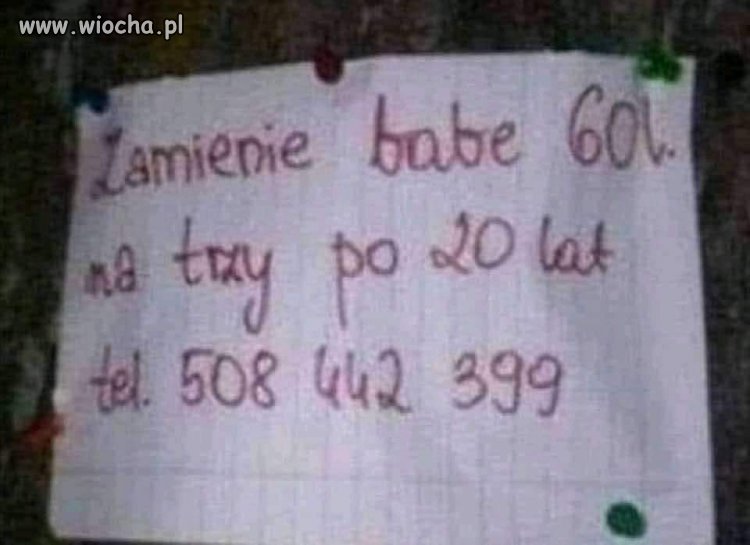 www.wiocha.pl
Zamienie babe 60l.
na trzy po 20 lat
tel. 508 442 399